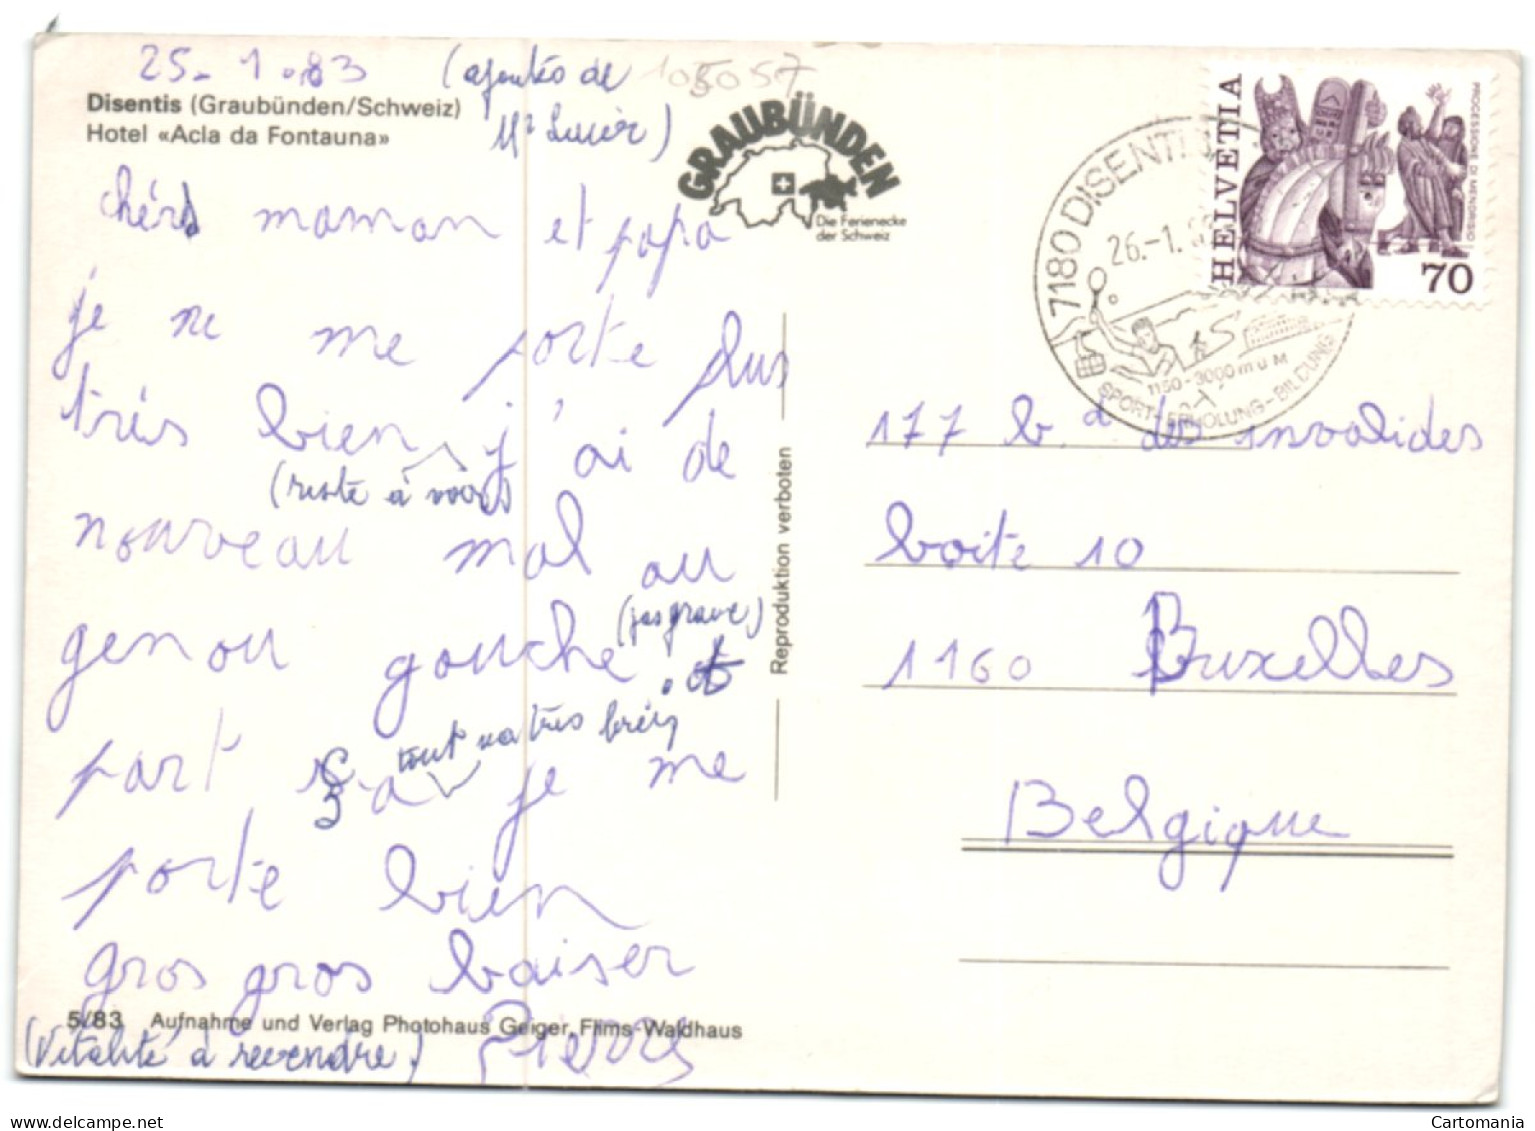 25-1.83 (ajoutés de
Mr Lucièr)
105057
Disentis (Graubünden/Schweiz)
Hotel «Acla da Fontauna»
GRAUBÜNDEN
Die Ferienecke
der Schweiz
HELVETIA
PROCESSIONE DI MENDRISIO
70
7180 DISENTIS
26.-1.83
1150-3000 m ü M
SPORT-ERHOLUNG-BILDUNG
chérs maman et papa
je ne me porte plus
très bien j'ai de
(reste à voir)
nouveau mal au
genou gauche.
(pas grave)
à
part ça je me
tout va très bien
porte bien
gros gros baiser
Pierre
(Vitalité à revendre)
5/83 Aufnahme und Verlag Photohaus Geiger, Flims-Waldhaus
Reproduktion verboten
177 b.d des invalides
boite 10
1160 Bruxelles
Belgique
Cartomania